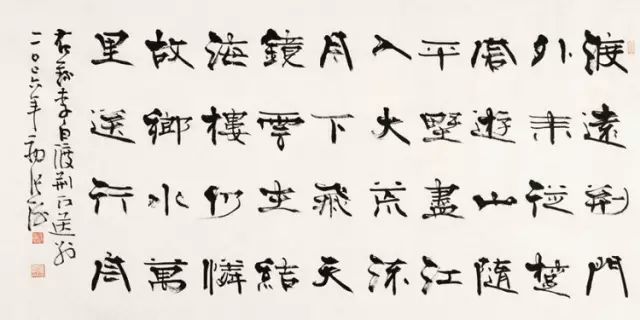 渡遠荊門
外来從楚
國遊山隨
平野盡江
入大荒流
月下飛天
鏡雲生結
海樓仍憐
故鄉水萬
里送行舟
右錄李白渡荆门送别
二〇〇六年